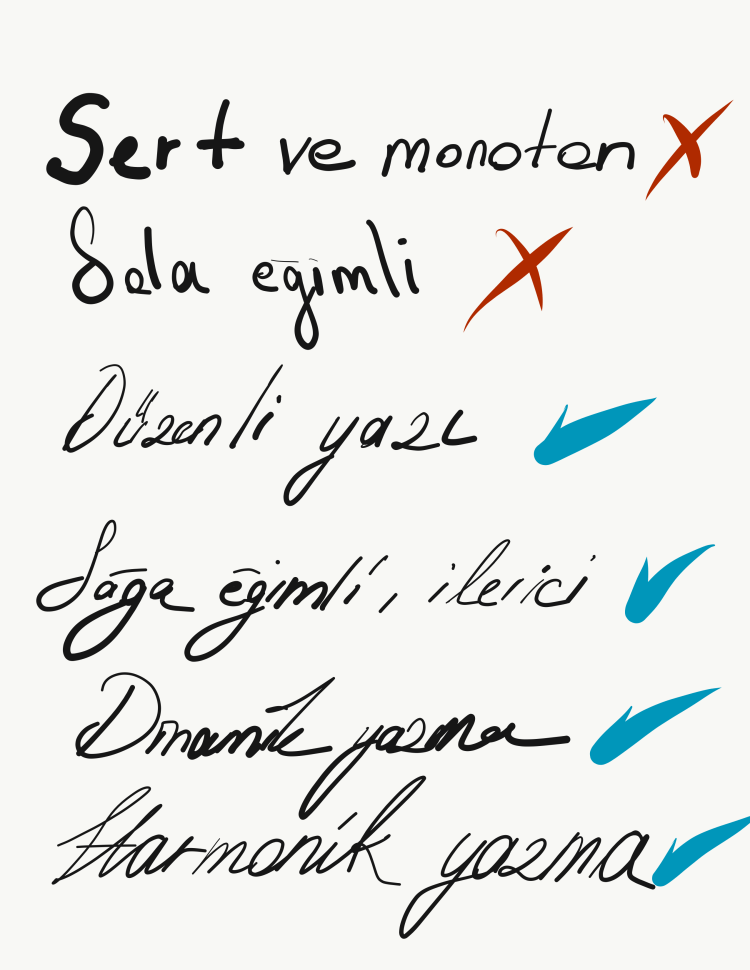 Sert ve monoton
Sola eğimli
Düzenli yazı
Sağa eğimli, ilerici
Dinamik yazma
Harmonik yazma